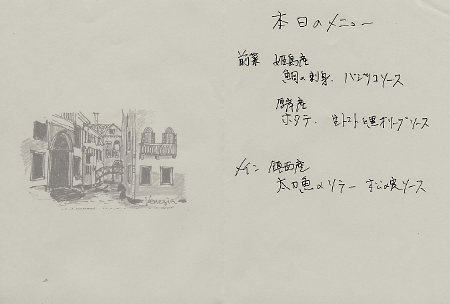 本日のメニュー
前菜 姫島産
鯛の刺身、バジリコソース
厚岸産
ホタテ、生トマトと黒オリーブソース
メイン 鎮西産
太刀魚のソテー ソース
Venezia